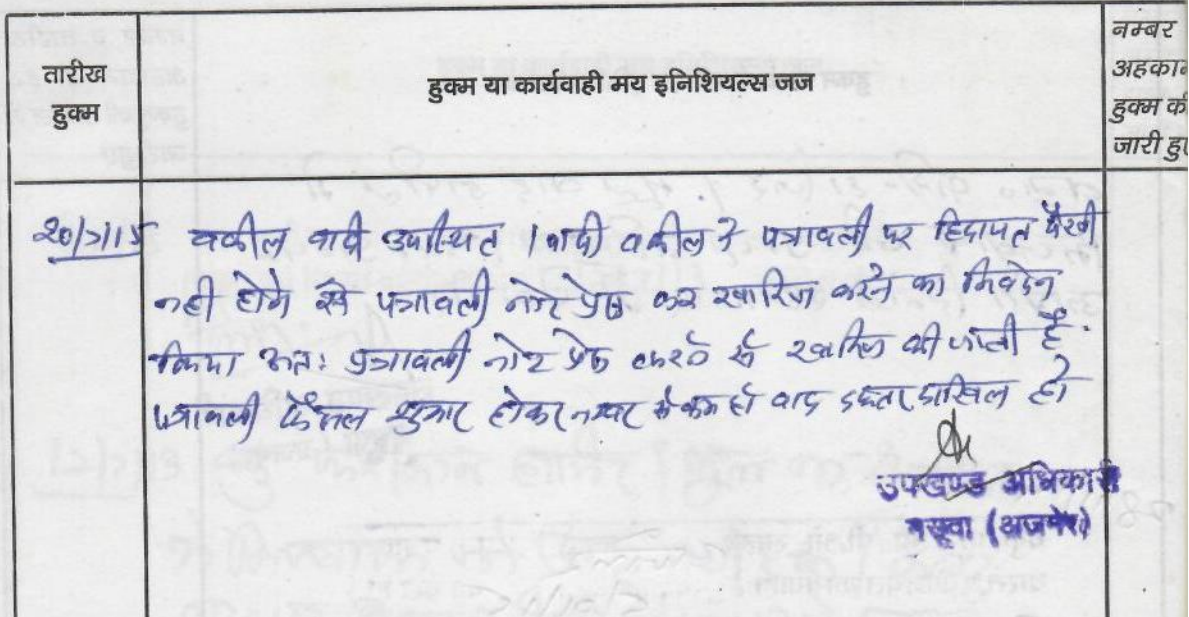 तारीख
हुक्म
हुक्म या कार्यवाही मय इनिशियल्स जज
नम्बर
अहकाम
हुक्म की
जारी हुए
वकील वादी उपस्थित । वादी वकील ने पत्रावली पर हिदायत पैरवी
नही होने से पत्रावली नोट प्रेस कर खारिज करने का निवेदन
किया अत: पत्रावली नोट प्रेस करने से खारिज की जाती है
पत्रावली फैसल शुमार होकर नम्बर से कम हो वाद दफ्तर दाखिल हो
उपखण्ड अधिकारी
(अजमेर)